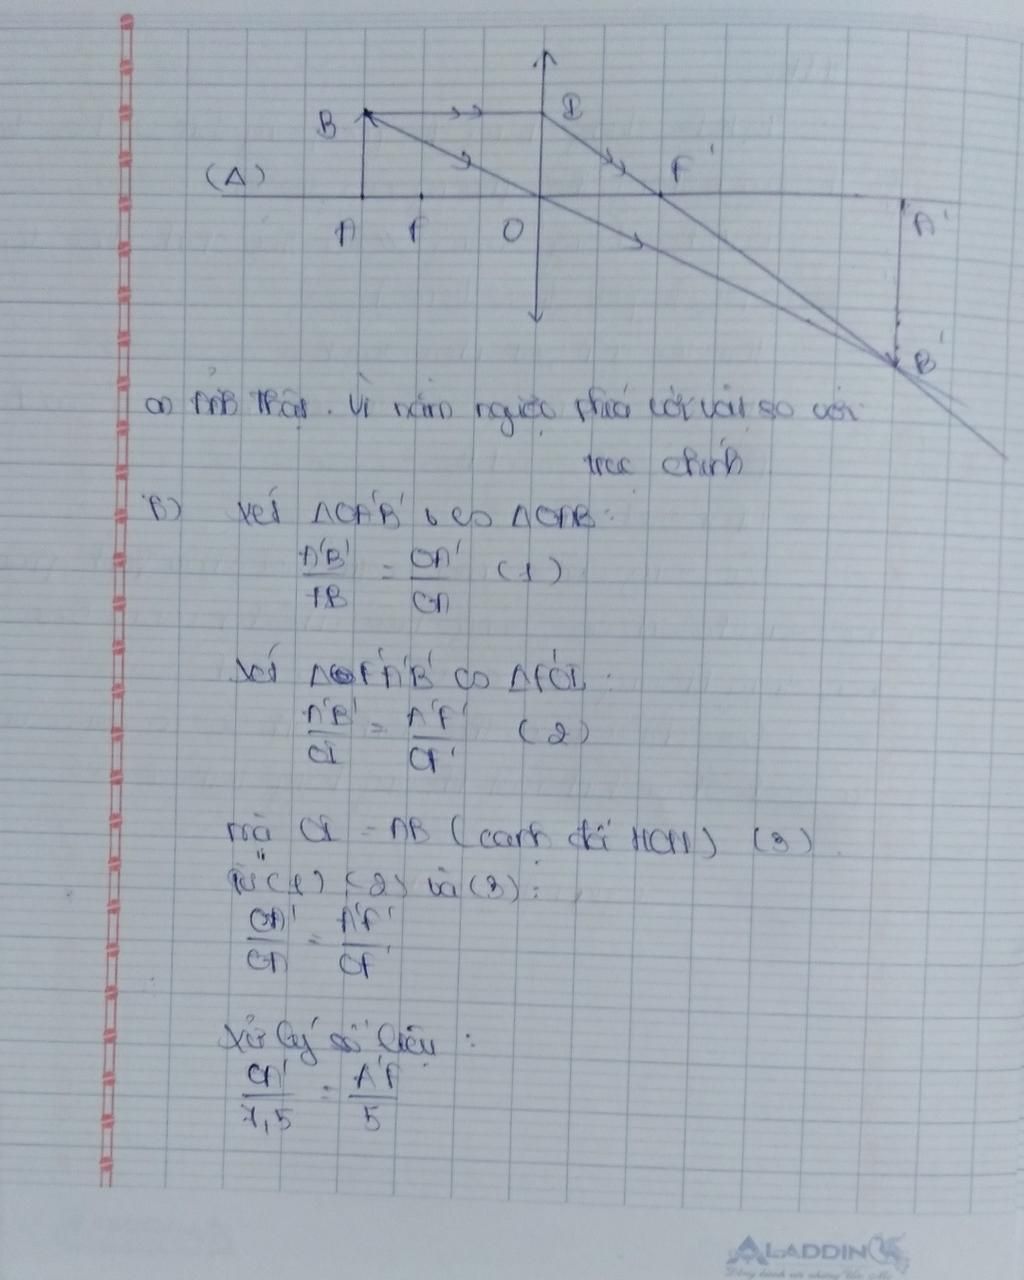 B
I
F'
(Δ)
A F O
A'
B'
a) ảnh thật. Vì nằm ngược phía với vật so với
trục chính
B) Xét ΔOA'B' ∽ ΔOAB:
A'B'/AB = OA'/OA (1)
Xét ΔF'A'B' ∽ ΔF'OI:
A'B'/OI = A'F'/OF' (2)
mà OI = AB (3)
Từ (1) (2) và (3):
OA'/OA = A'F'/OF'
Xử lý số liệu:
OA'/7,5 = A'F/5
ALADDIN